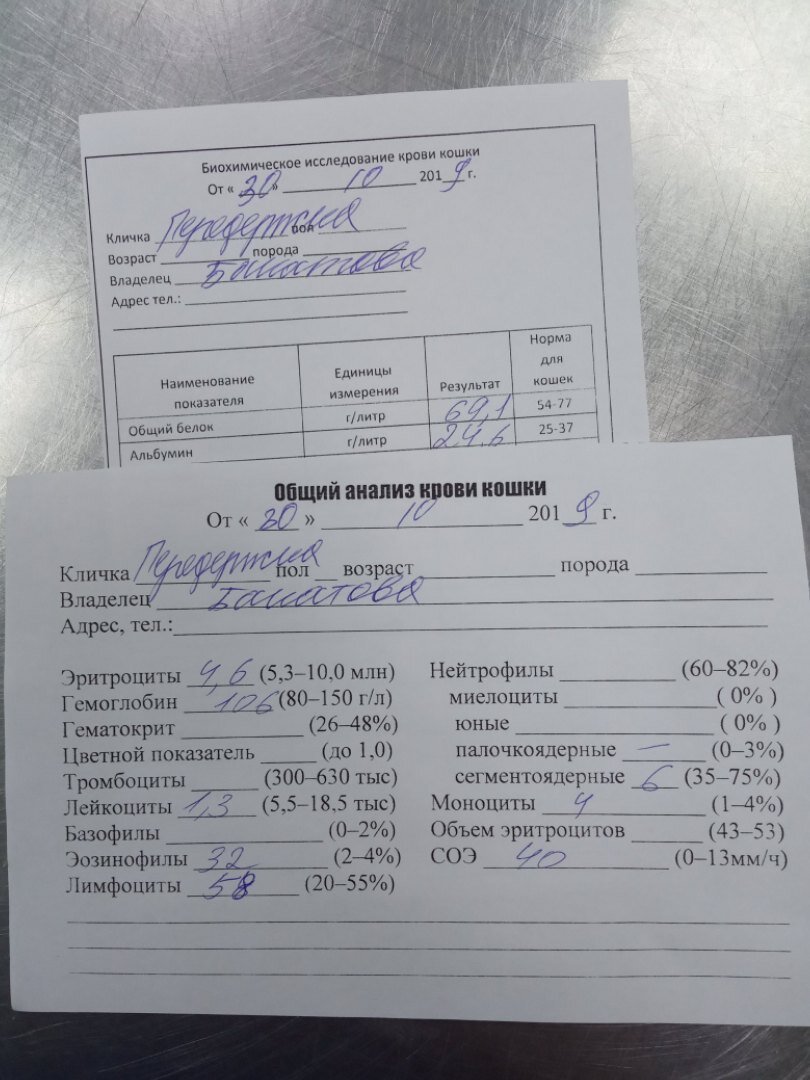 Биохимическое исследование крови кошки
От « 30 » 10 2019 г.
Кличка Передержка пол
Возраст порода
Владелец
Адрес тел.:
Наименование показателя Единицы измерения Результат Норма для кошек
Общий белок г/литр 69,1 54-77
Альбумин г/литр 24,6 25-37
Общий анализ крови кошки
От « 30 » 10 2019 г.
Кличка Передержка пол возраст порода
Владелец
Адрес, тел.:
Эритроциты 4,6 (5,3–10,0 млн) Нейтрофилы (60–82%)
Гемоглобин 106 (80–150 г/л) миелоциты ( 0% )
Гематокрит (26–48%) юные ( 0% )
Цветной показатель (до 1,0) палочкоядерные — (0–3%)
Тромбоциты (300–630 тыс) сегментоядерные 6 (35–75%)
Лейкоциты 1,3 (5,5–18,5 тыс) Моноциты 4 (1–4%)
Базофилы (0–2%) Объем эритроцитов (43–53)
Эозинофилы 32 (2–4%) СОЭ 40 (0–13мм/ч)
Лимфоциты 58 (20–55%)